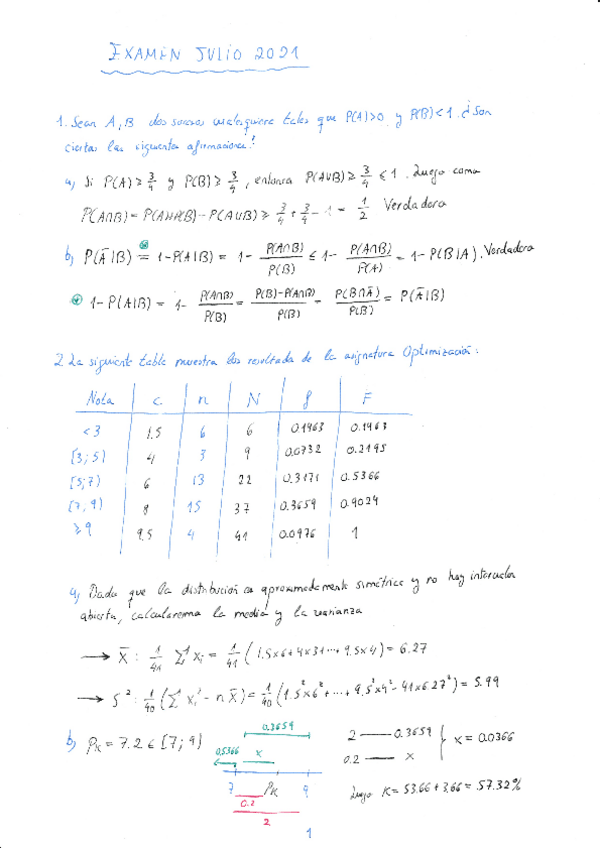 EXAMEN JULIO 2021
1. Sean A, B dos sucesos cualesquiera tales que P(A)>0 y P(B)<1. ¿Son
ciertas las siguientes afirmaciones?
a) Si P(A) ≥ 3/4 y P(B) ≥ 3/4, entonces P(A∪B) ≥ 3/4 ≤ 1. Luego como
P(A∩B) = P(A)+P(B) - P(A∪B) ≥ 3/4 + 3/4 - 1 = 1/2 Verdadera
b) P(Ā|B) = 1-P(A|B) = 1 - P(A∩B)/P(B) ≤ 1 - P(A∩B)/P(A) = 1-P(B|A). Verdadera
* 1-P(A|B) = 1 - P(A∩B)/P(B) = P(B)-P(A∩B)/P(B) = P(B∩Ā)/P(B) = P(Ā|B)
2. La siguiente tabla muestra los resultados de la asignatura Optimización:
Nota c. n N f F
<3 1.5 6 6 0.1463 0.1463
[3;5) 4 3 9 0.0732 0.2195
[5;7) 6 13 22 0.3171 0.5366
[7,9) 8 15 37 0.3659 0.9024
≥9 9.5 4 41 0.0976 1
a) Dado que la distribución es aproximadamente simétrica y no hay intervalos
abierta, calcularemos la media y la varianza
→ X̄: 1/41 Σ xᵢ = 1/41 (1.5x6+4x3+...+9.5x4) = 6.27
→ S²: 1/40 (Σ xᵢ² - n X̄) = 1/40 (1.5²x6²+...+9.5²x4²-41x6.27²) = 5.99
b) Pk = 7.2 ∈ [7;9)
0.3659
0.5366 x
7 Pk 9
0.2
2
2 — 0.3659
0.2 — x
x = 0.0366
Luego K = 53.66+3,66 = 57.32%
1